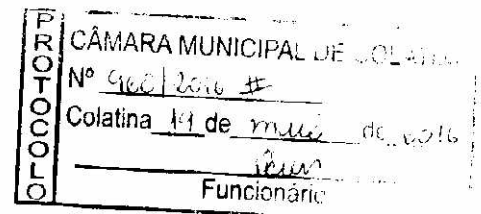 PROTOCOLO
CÂMARA MUNICIPAL DE COLATINA
Nº 960/2016 #
Colatina 19 de de 2016
Funcionário